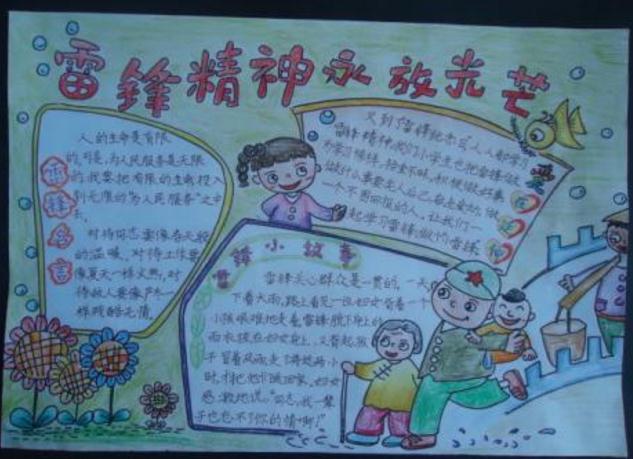 雷鋒精神永放光芒
人的生命是有限
的,可是,为人民服务是无限
的,我要把有限的生命投入
到无限的"为人民服务"之中
去。
对待同志要像春天般
的温暖,对待工作要
像夏天一样火热,对
待敌人要像严冬一
样残酷无情。
雷锋名言
又到"雷锋纪念日",人人都学习
雷锋精神,我们小学生也把雷锋做
个不图回报的人,让我们一
起学习雷锋,做
爱在
小故事
雷锋关心群众是一贯的,一天
下着大雨,路上看见一位妇女背着一个
小孩艰难地走着,雷锋脱下身上的
雨衣披在妇女身上,又背起孩
子冒着风雨走了两
时,才把她们送回家,妇女
感激地说:"同志,我一辈
子也忘不了你的情啊!"